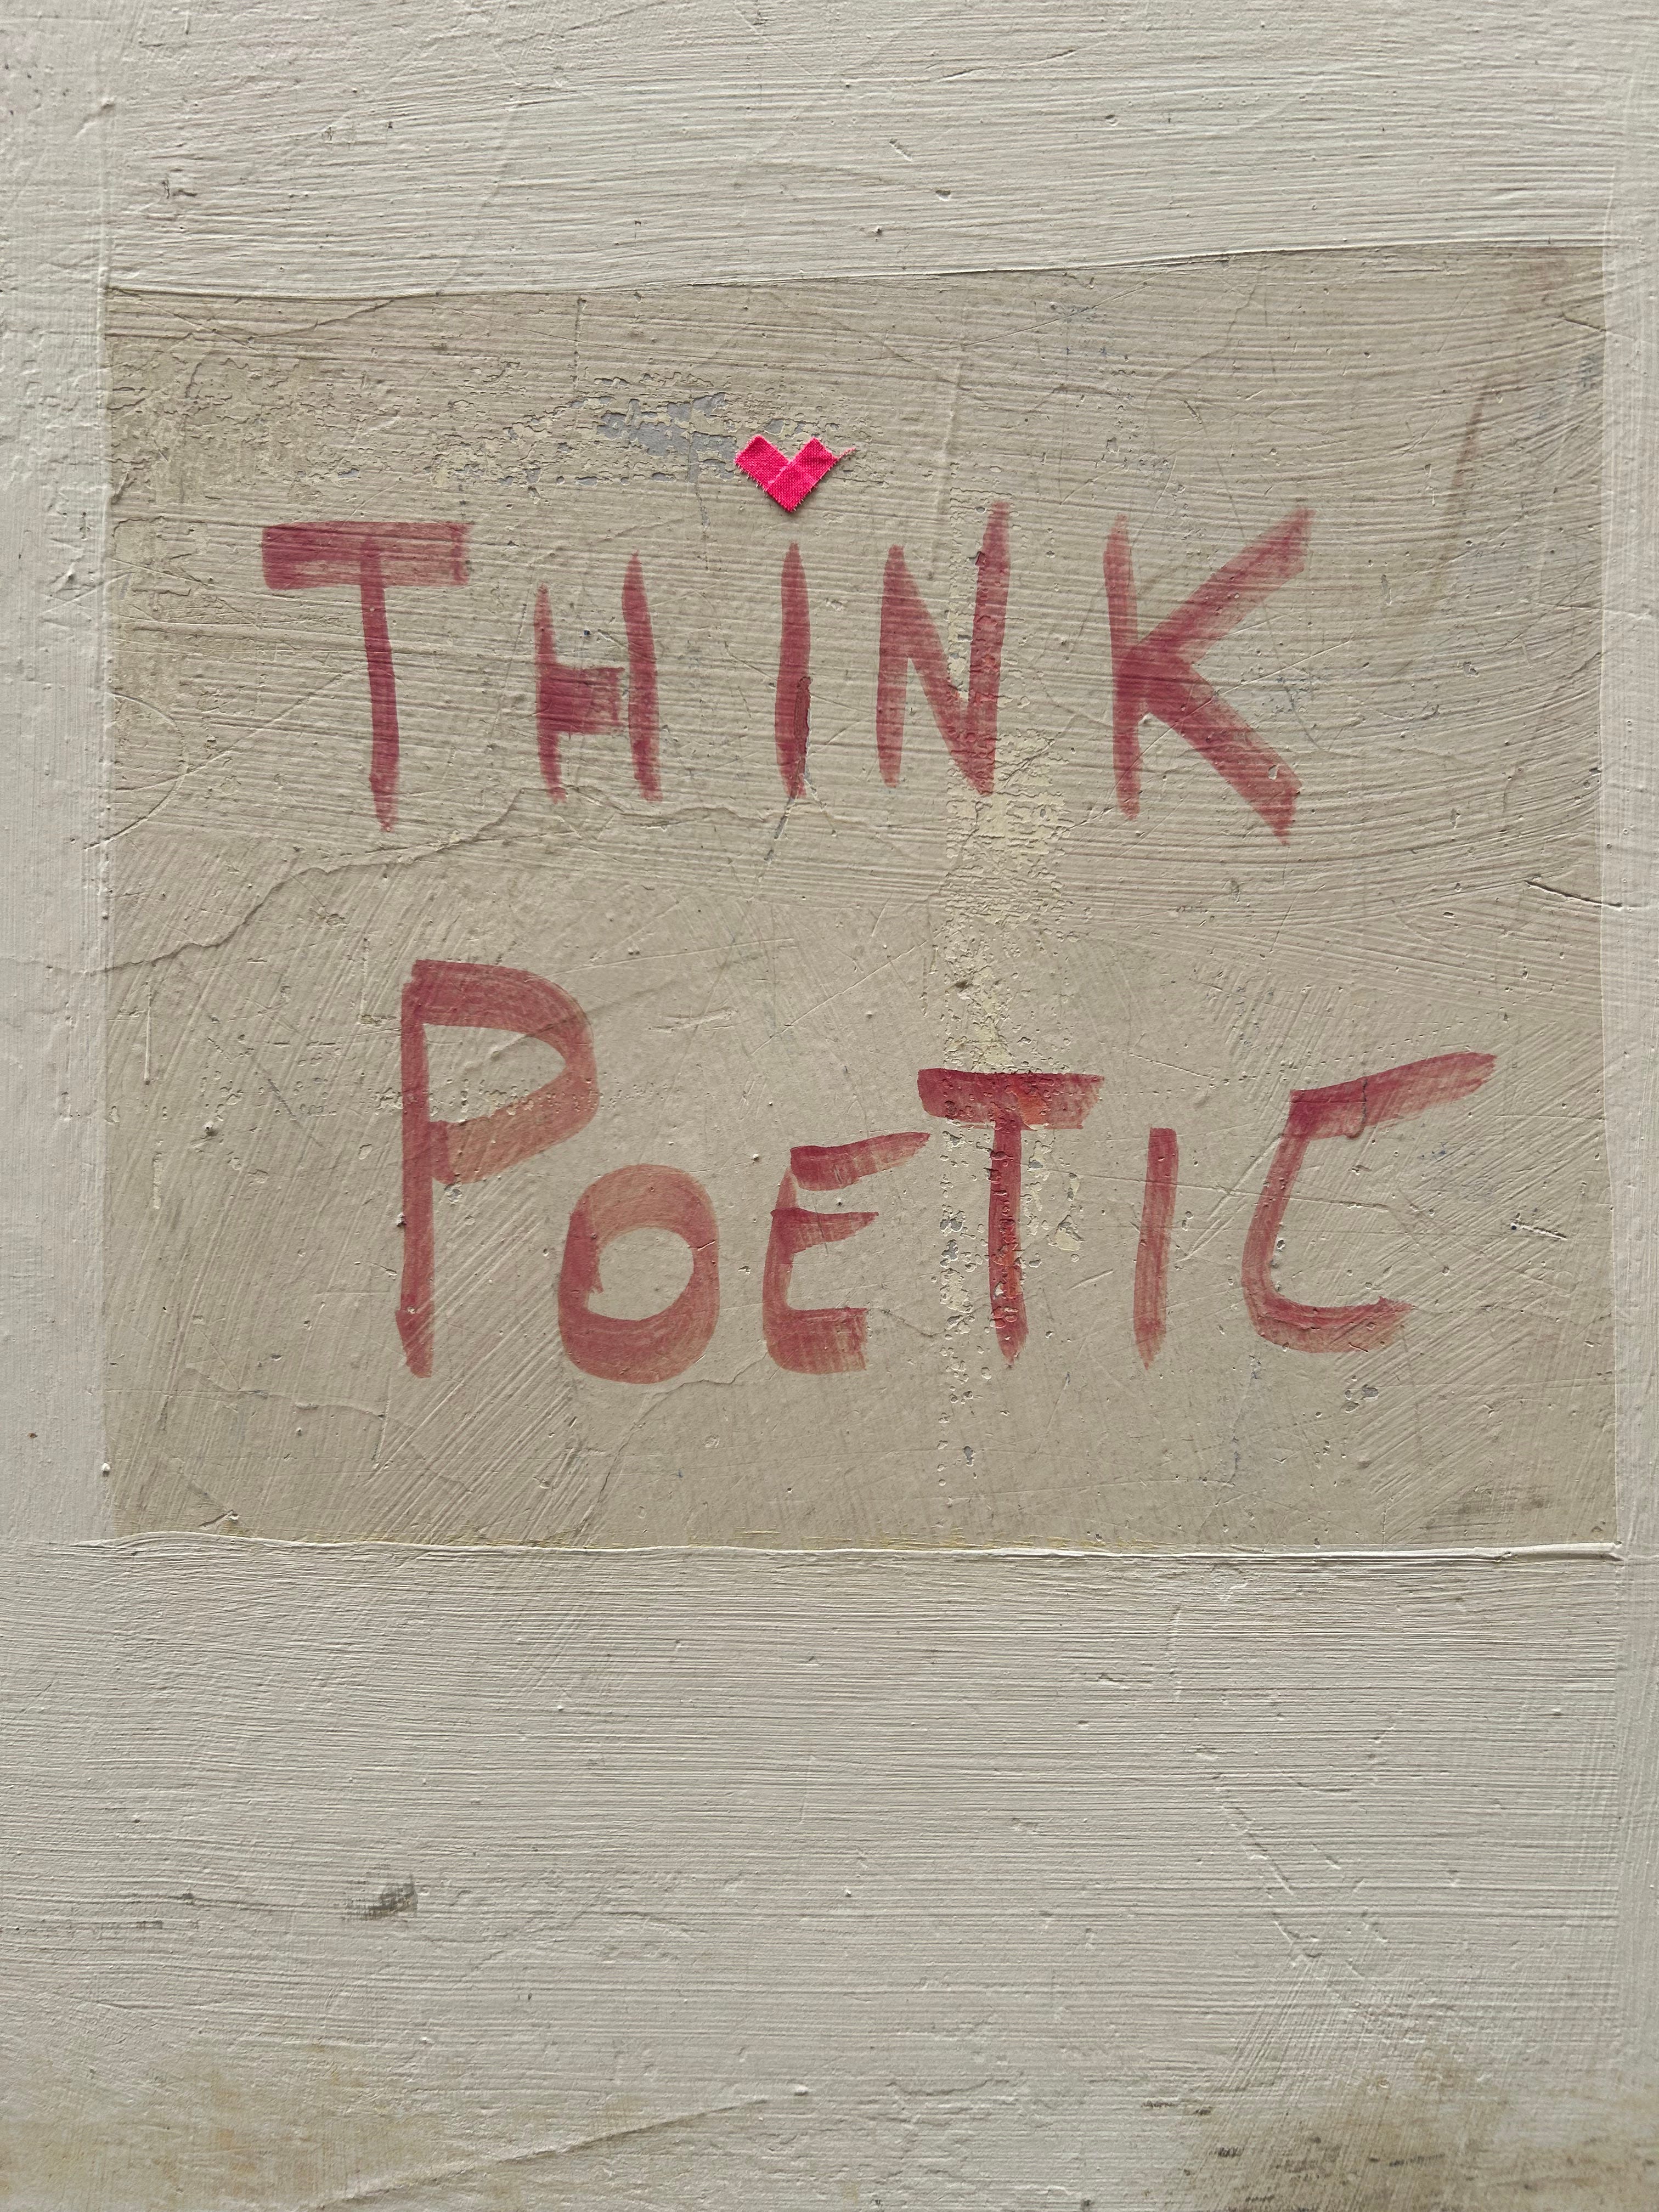 THiNK
POETIC